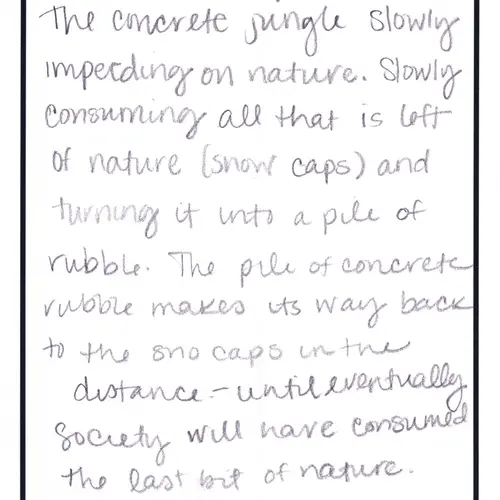 The concrete jungle slowly
impeeding on nature. Slowly
consuming all that is left
of nature (snow caps) and
turning it into a pile of
rubble. The pile of concrete
rubble makes its way back
to the sno caps in the
distance - until eventually
society will have consumed
the last bit of nature.